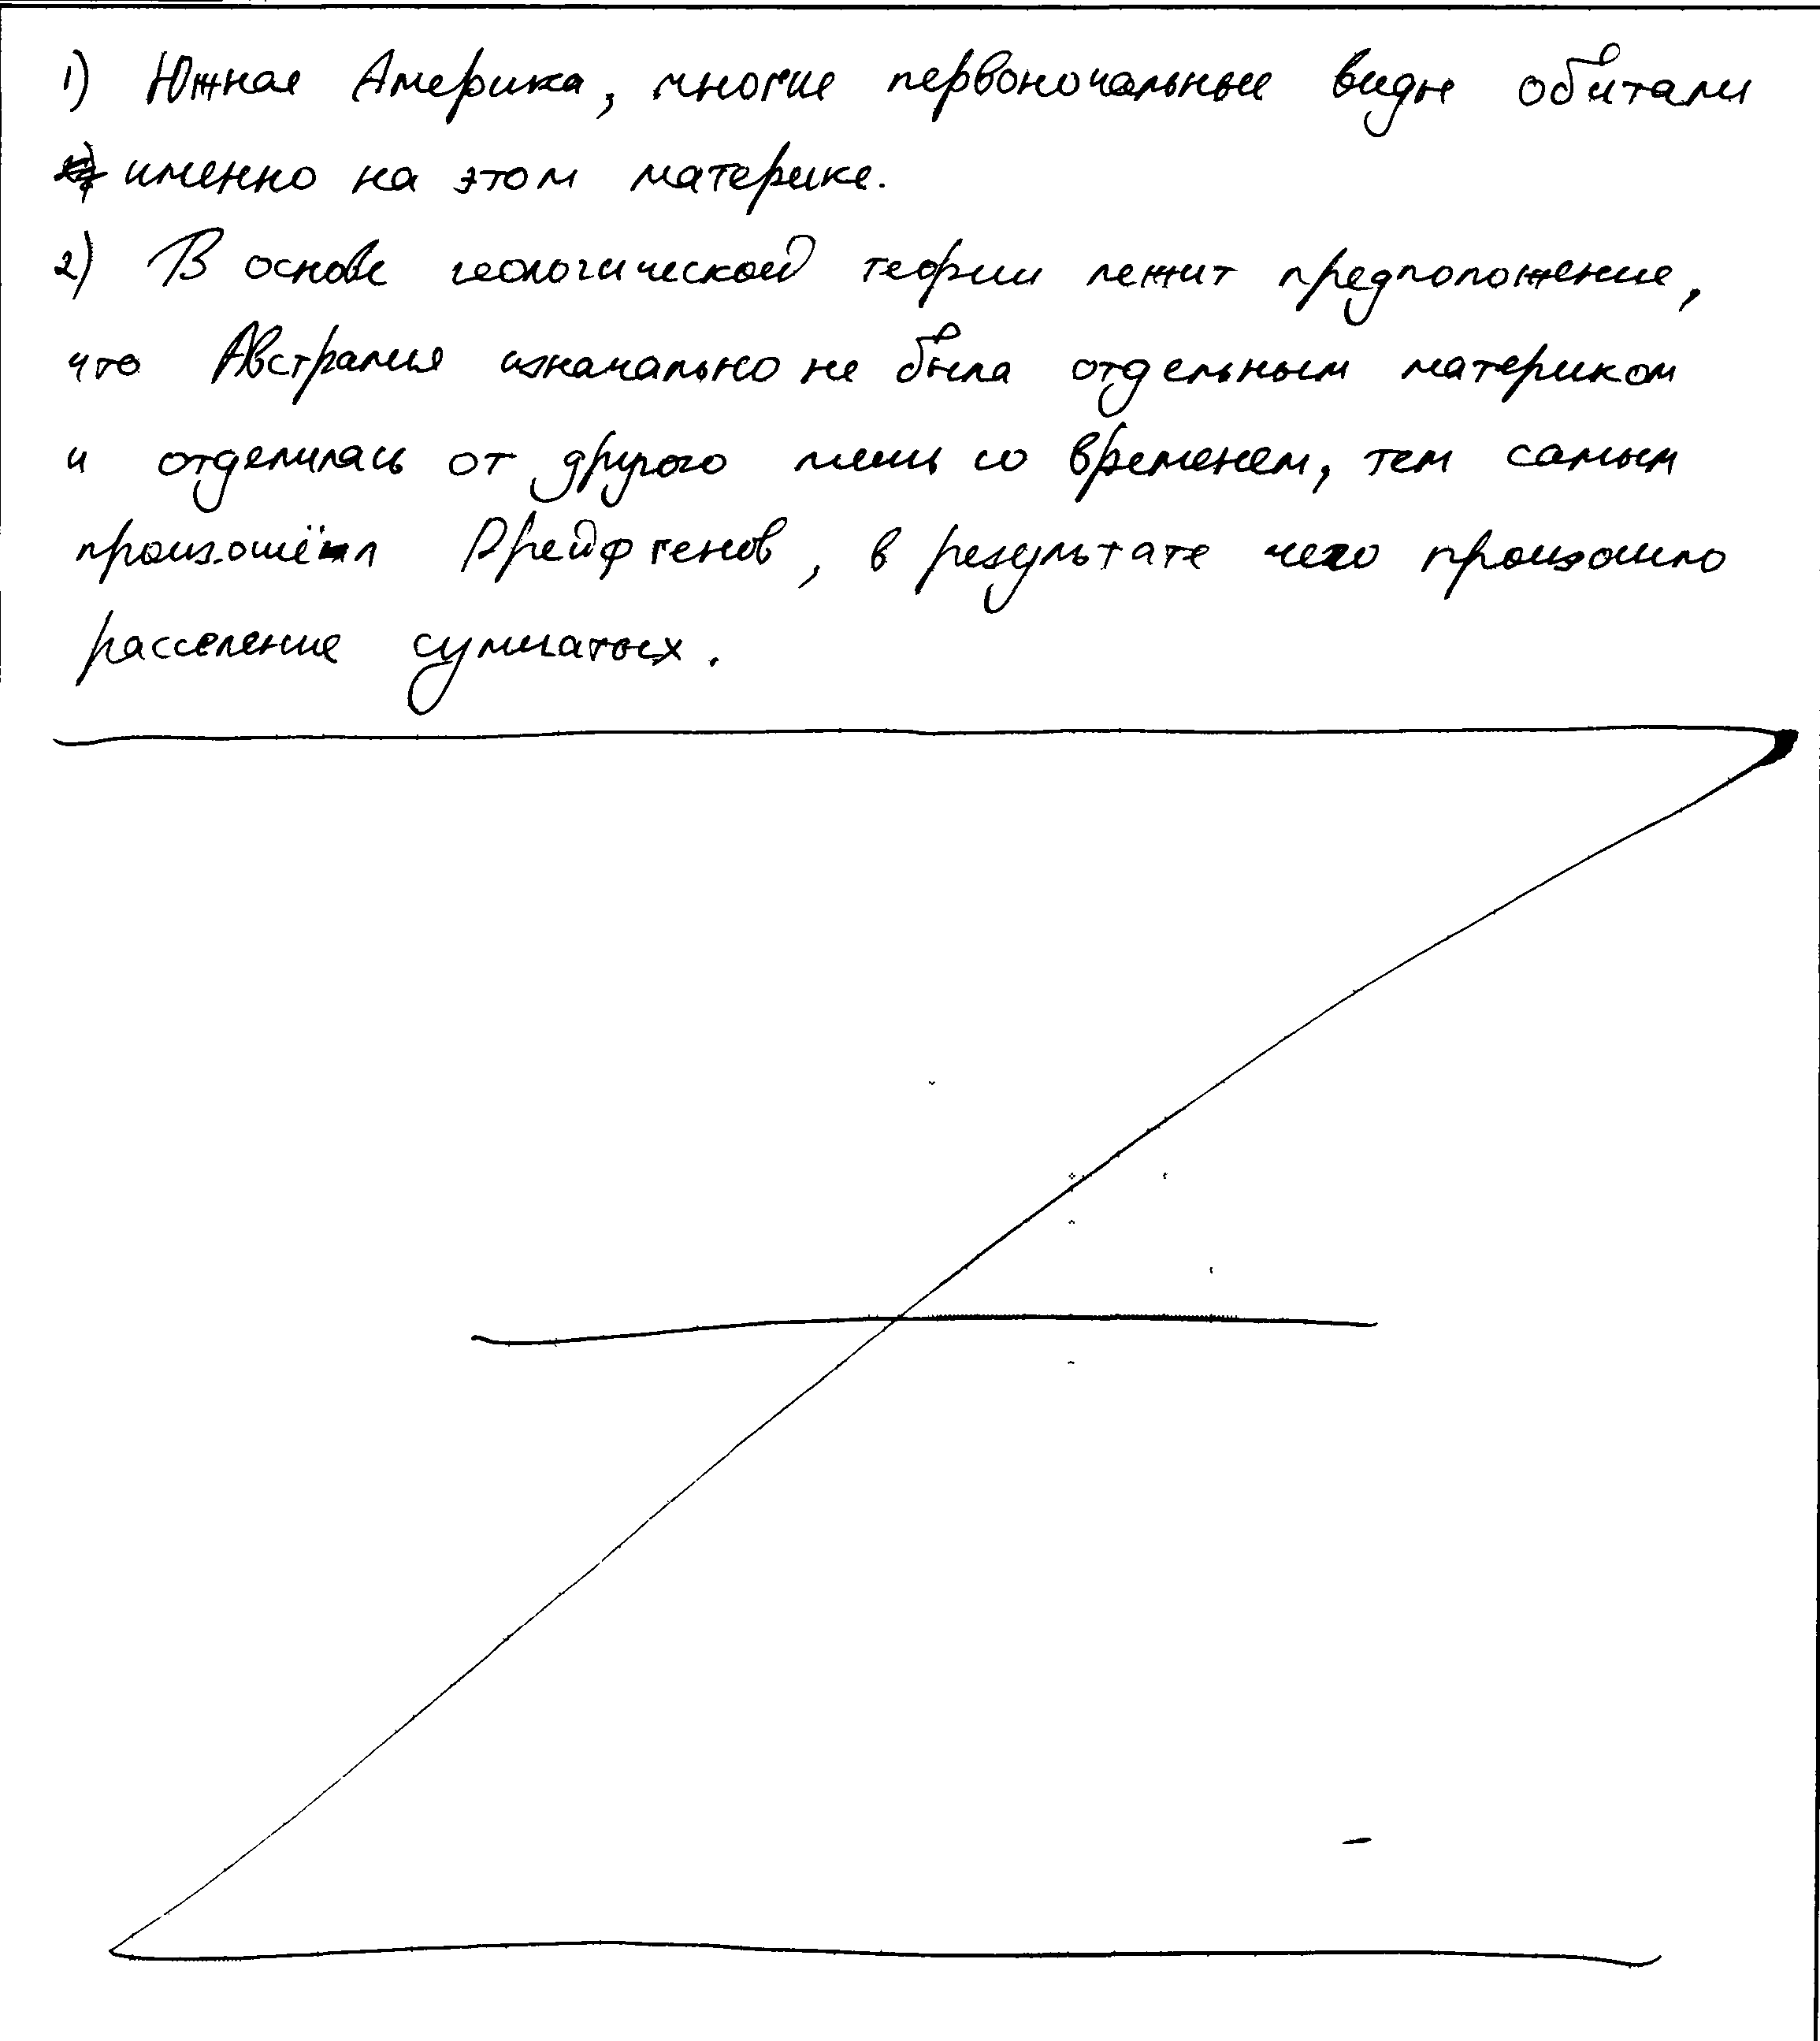 1) Южная Америка, многие первоначальные виды обитали
именно на этом материке.
2) В основе геологической теории лежит предположение,
что Австралия изначально не была отдельным материком
и отделилась от другого лишь со временем, тем самым
произошёл Дрейф генов, в результате чего произошло
расселение сумчатых.